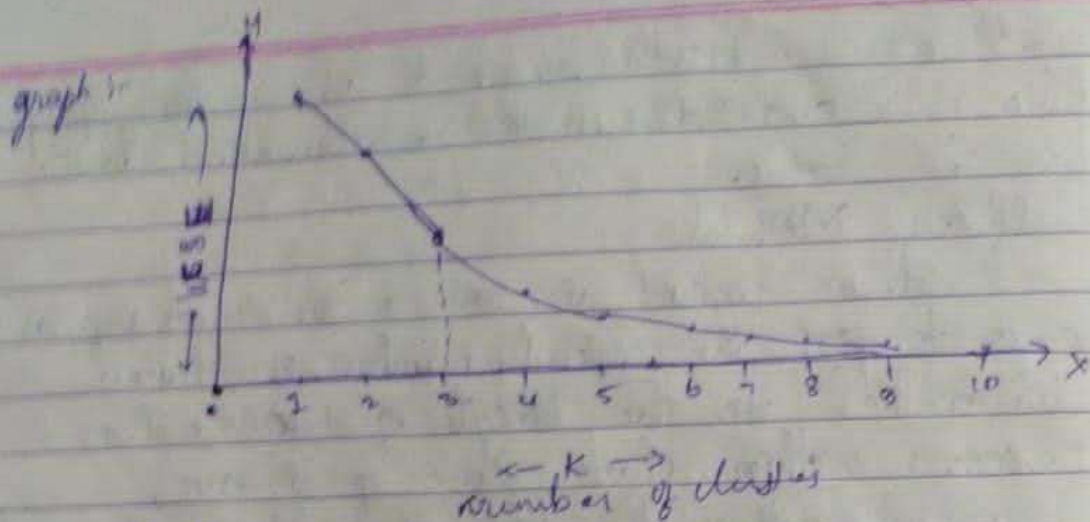 y
graph :-
← WSSE →
0 1 2 3 4 5 6 7 8 9 10 X
← K →
number of clusters